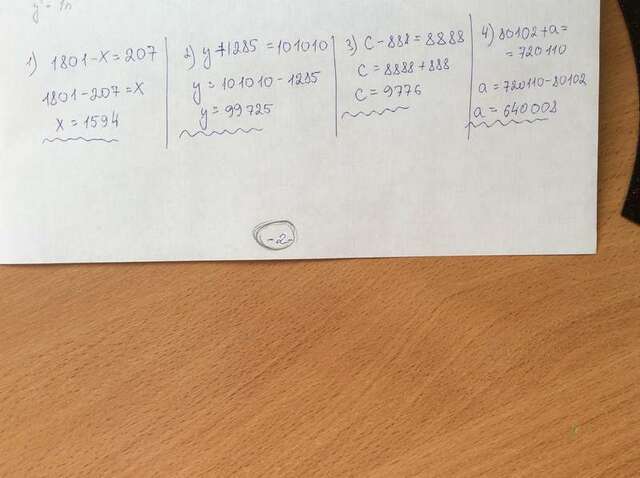 1) 1801-x=207
1801-207=x
x=1594
2) y+1285=101010
y=101010-1285
y=99725
3) c-888=8888
c=8888+888
c=9776
4) 80102+a=
=720110
a=720110-80102
a=640008
-2-